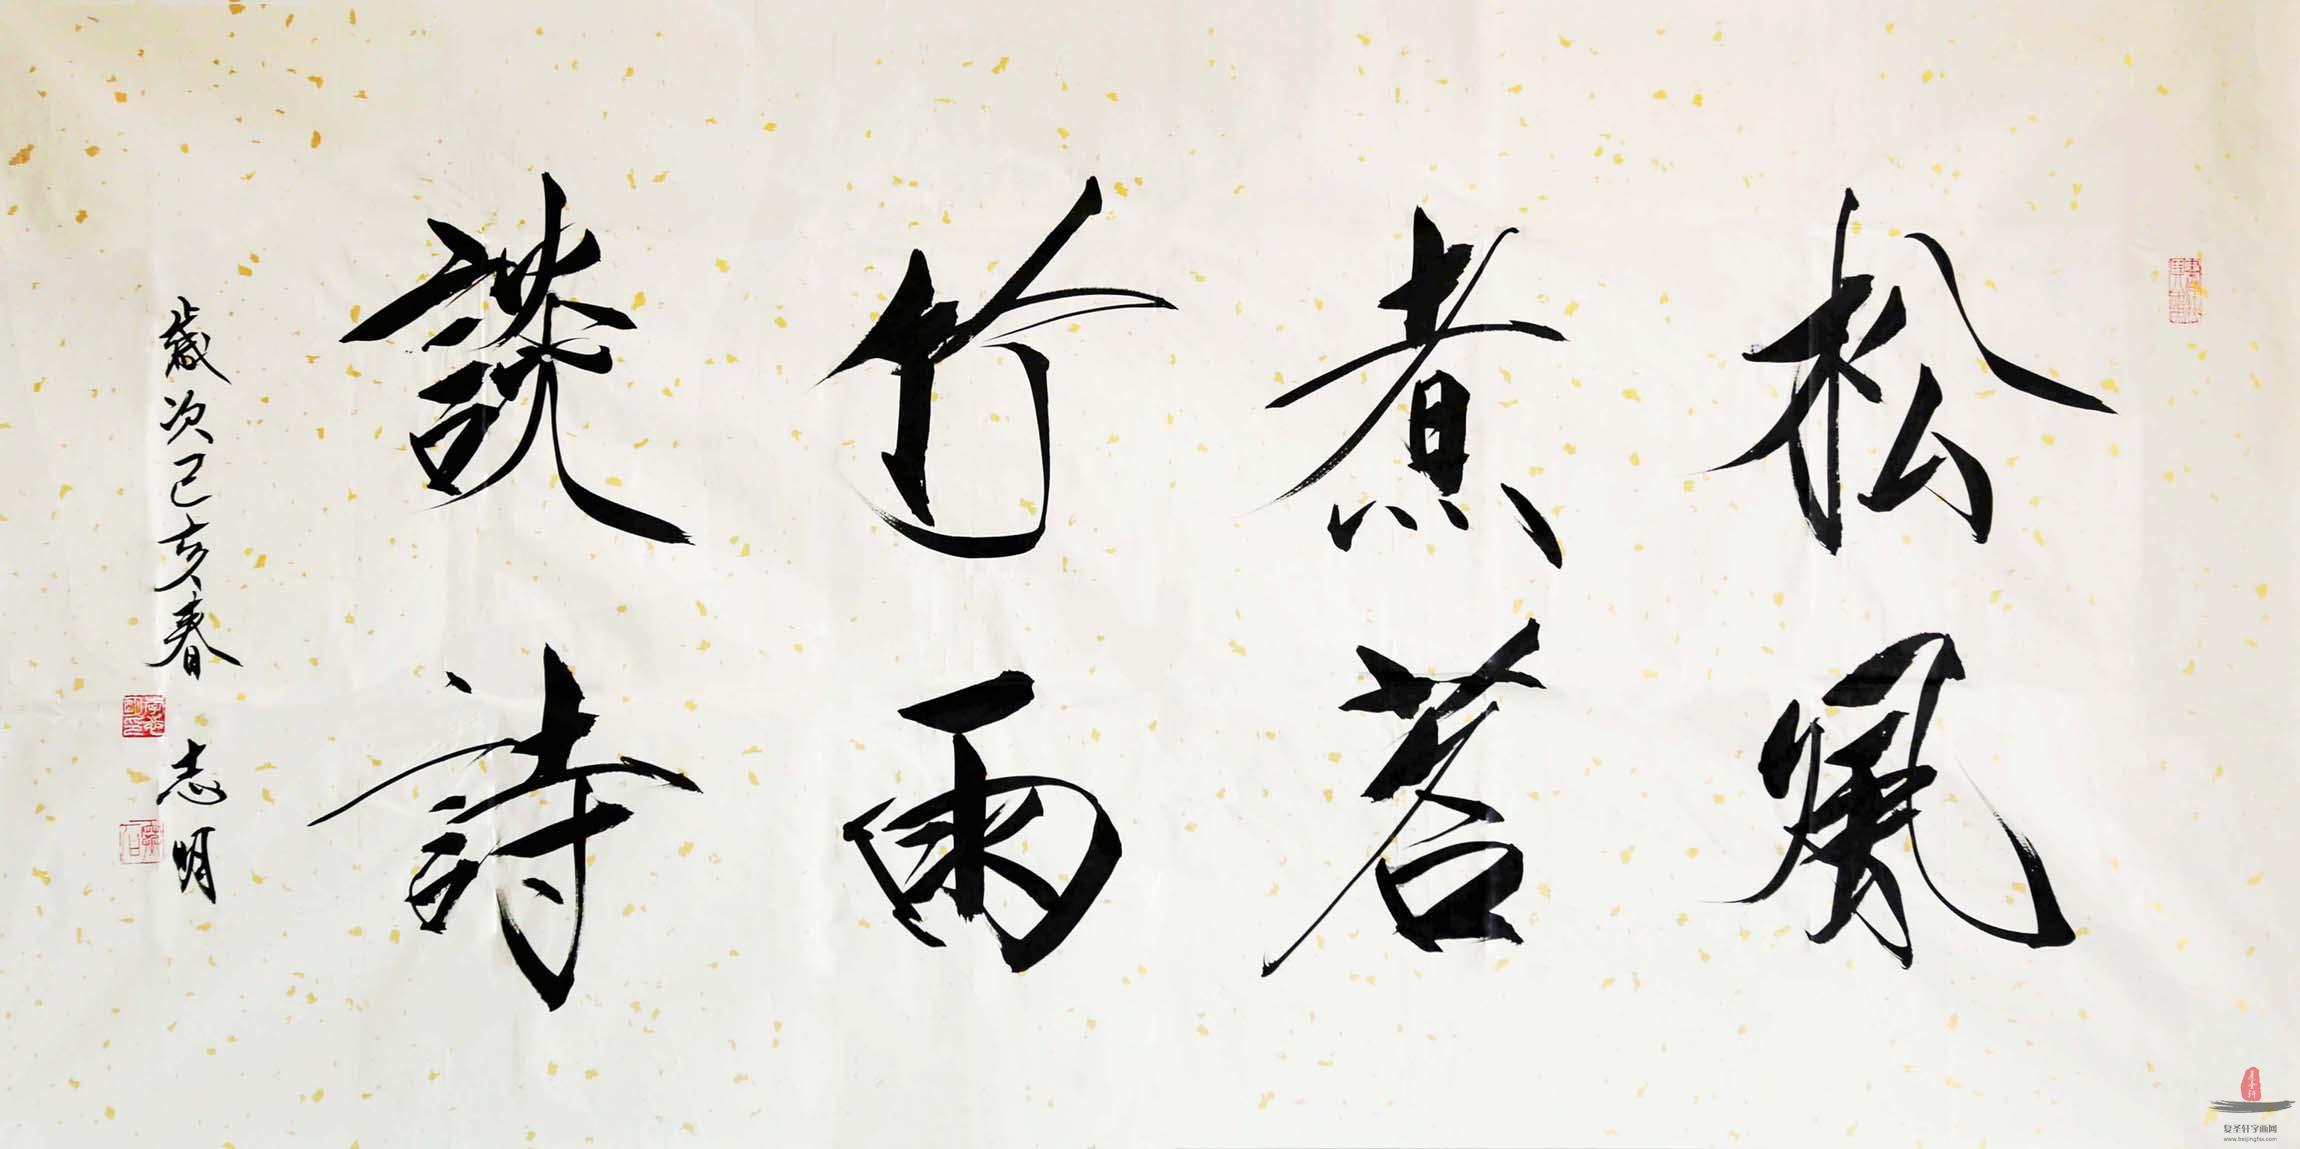 松風
煮茗
竹雨
談詩
歲次己亥春 志明
复圣轩字画网
www.beijingfsx.com